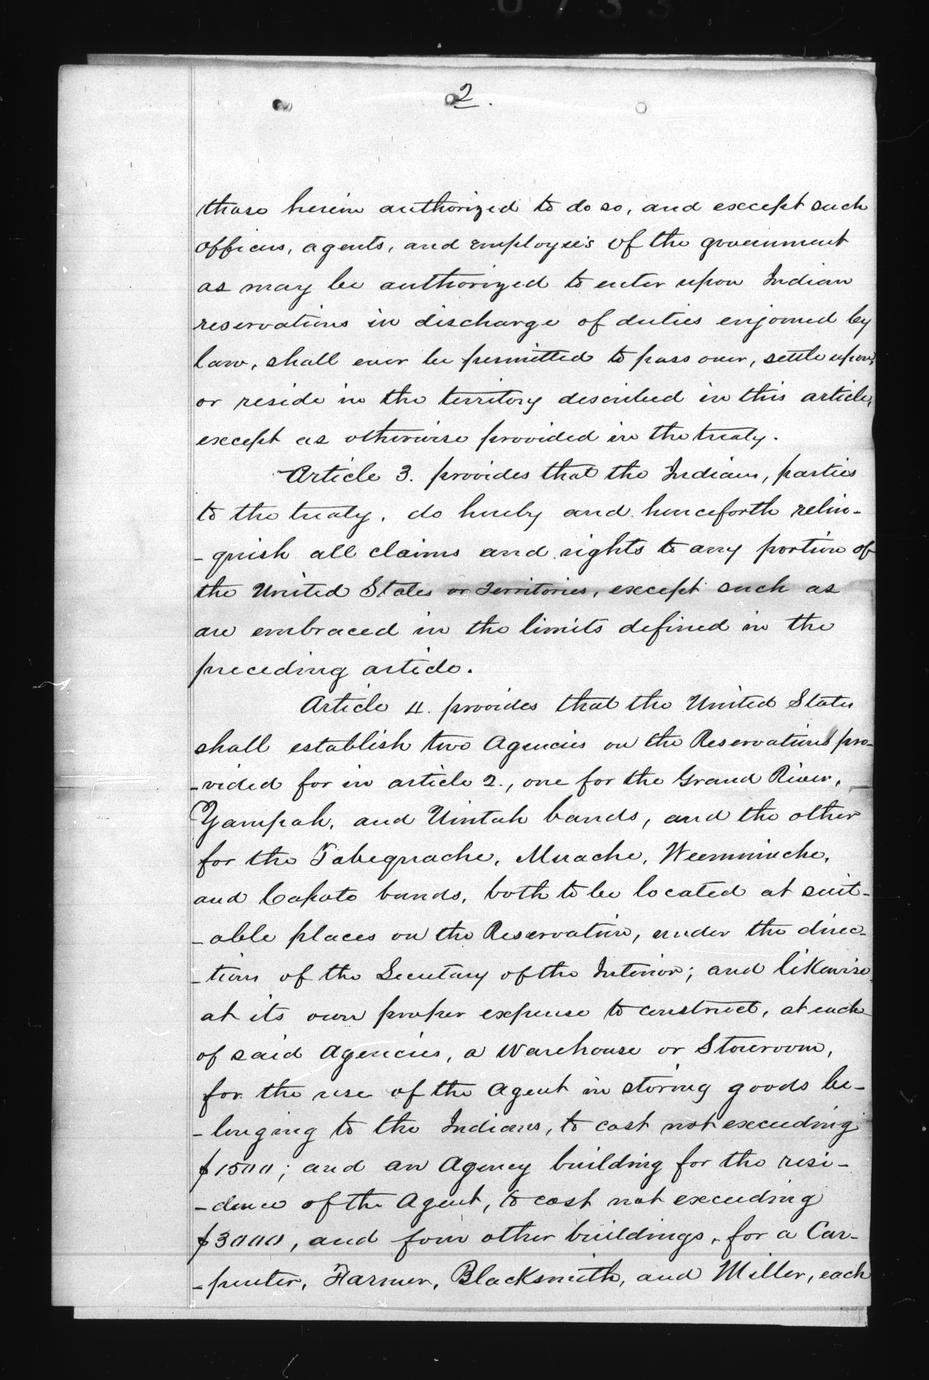 2.
those herein authorized to do so, and except such
officers, agents, and employeé's of the government
as may be authorized to enter upon Indian
reservations in discharge of duties enjoined by
law, shall ever be permitted to pass over, settle upon,
or reside in the territory described in this article,
except as otherwise provided in the treaty.
Article 3. provides that the Indians, parties
to the treaty, do hereby and henceforth relin-
-quish all claims and rights to any portion of
the United States or Territories, except such as
are embraced in the limits defined in the
preceding article.
Article 4. provides that the United States
shall establish two Agencies on the Reservations pro-
-vided for in article 2., one for the Grand River,
Yampah, and Uintah bands, and the other
for the Tabequache, Muache, Weeminuche,
and Capote bands, both to be located at suit-
-able places on the Reservation, under the direc-
-tion of the Secretary of the Interior; and likewise
at its own proper expense to construct, at each
of said Agencies, a Warehouse or Storeroom,
for the use of the Agent in storing goods be-
-longing to the Indians, to cost not exceeding
$1500; and an Agency building for the resi-
-dence of the Agent, to cost not exceeding
$3000, and four other buildings, for a Car-
-penter, Farmer, Blacksmith, and Miller, each